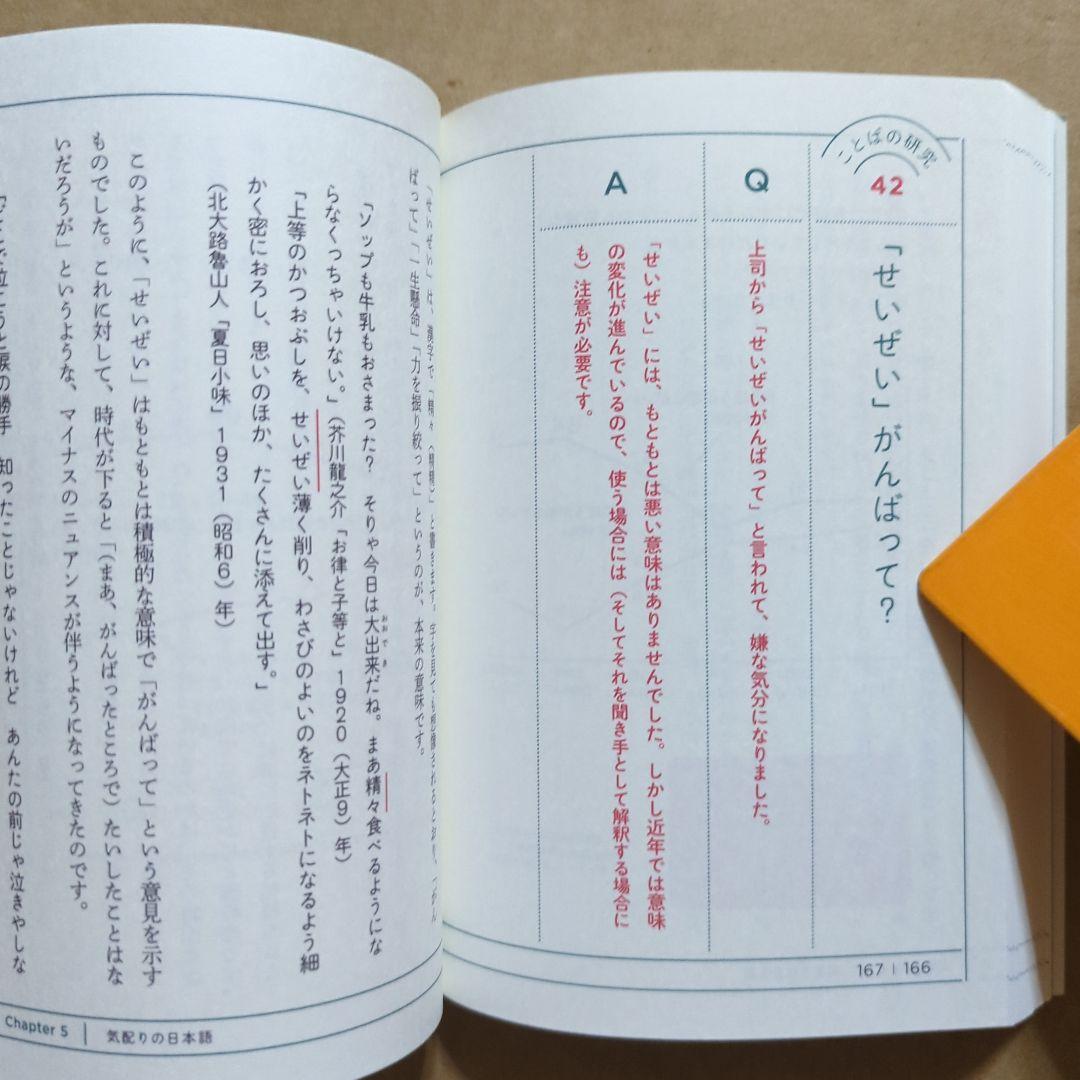 ことばの研究
42
「せいぜい」がんばって？
Q
上司から「せいぜいがんばって」と言われて、嫌な気分になりました。
A
「せいぜい」には、もともとは悪い意味はありませんでした。しかし近年では意味
の変化が進んでいるので、使う場合には（そしてそれを聞き手として解釈する場合に
も）注意が必要です。
167 | 166
「せいぜい」は、漢字で「精々（精精）」と書きます。字を見ても想像されるとおり、「がん
ばって」「一生懸命」「力を振り絞って」というのが、本来の意味です。
「ソップも牛乳もおさまった？　そりゃ今日は大出来だね。まあ精々食べるようにな
おおでき
らなくっちゃいけない。」（芥川龍之介「お律と子等と」1920（大正9）年）
「上等のかつおぶしを、せいぜい薄く削り、わさびのよいのをネトネトになるよう細
かく密におろし、思いのほか、たくさんに添えて出す。」
（北大路魯山人「夏日小味」1931（昭和6）年）
このように、「せいぜい」はもともとは積極的な意味で「がんばって」という意見を示す
ものでした。これに対して、時代が下ると「（まあ、がんばったところで）たいしたことはな
いだろうが」というような、マイナスのニュアンスが伴うようになってきたのです。
「どこで泣こうと涙の勝手　知ったことじゃないけれど　あんたの前じゃ泣きやしな
Chapter 5 | 気配りの日本語